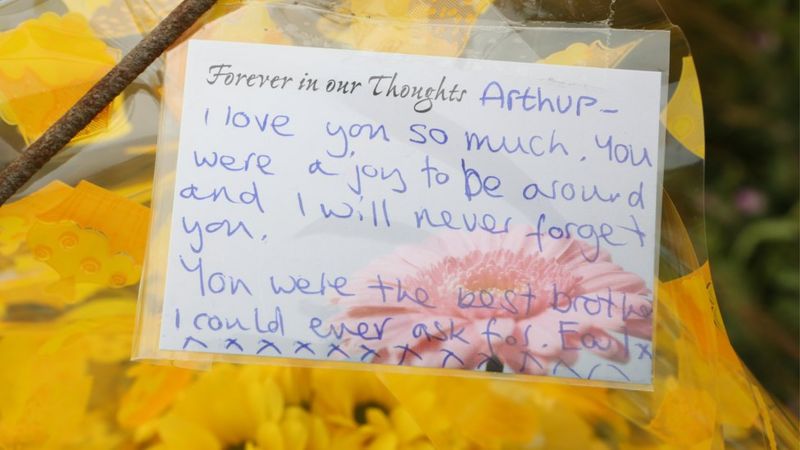 Forever in our Thoughts Arthur-
I love you so much. You
were a joy to be around
and I will never forget
you.
You were the best brothe
I could ever ask for. Earl x
x x x x x x x x x x x